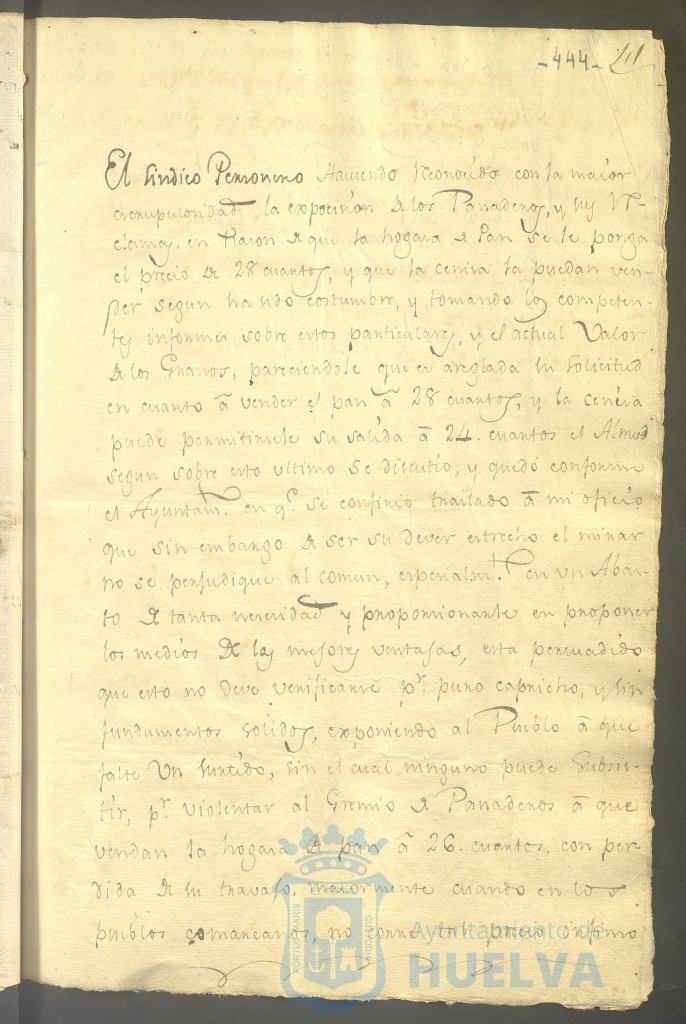 -444-
El Sindico Personero Haviendo Reconocido con la maior
escrupulosidad la exposicion de los Panaderos, y sus Re-
clamos, en Razon de que la hogaza de Pan se le ponga
el precio de 28 cuartos, y que la cemiza la puedan ven-
der segun ha sido costumbre, y tomando los competen-
tes informes sobre estos particulares, y el actual Valor
de los Granos, pareciendole que es areglada su solicitud
en cuanto â vender el pan â 28 cuartos, y la
puede permitirsele su salida â 24. cuartos el Almud
segun sobre esto ultimo se discutio, y quedó conforme
el Ayuntamto. en qe. se confirio traslado â mi oficio
que sin embargo de ser su dever estrecho el mirar
no se perjudique al comun, especialmte. en un Abas-
to de tanta necesidad y proporsionarte en proponer
los medios de las mejores ventajas, esta persuadido
que esto no deve verificarse pr. puro capricho, y sin
fundamentos solidos, exponiendo al Pueblo â que
falte un surtido, sin el cual ninguno puede subsis-
tir, pr. violentar al Gremio de Panaderos â que
vendan la hogaza de pan â 26. cuartos, con per-
dida de su travajo, maiormente cuando en los
pueblos comarcanos, no corre tal precio infimo
PORTUS MARIS
CUSTODIA
Ayuntamiento de
HUELVA